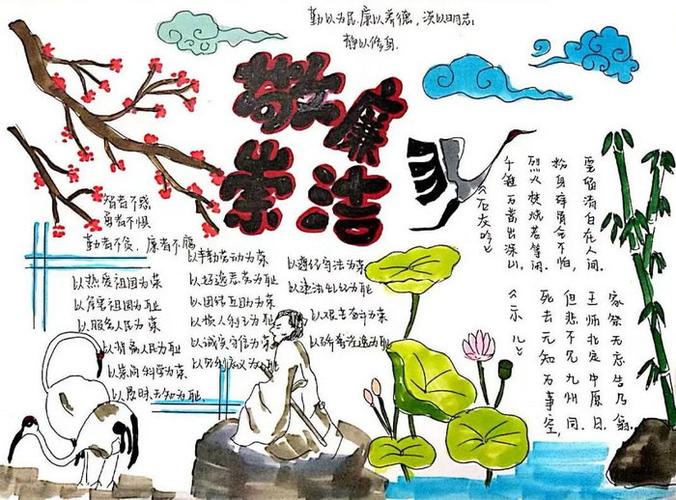 勤以为民,廉以养德,淡以明志,
静以修身.
敬廉
崇洁
智者不惑
勇者不惧
勤者不贪,廉者不腐
以热爱祖国为荣
以危害祖国为耻
以服务人民为荣
以背离人民为耻
以崇尚科学为荣
以愚昧无知为耻
以辛勤劳动为荣
以好逸恶劳为耻
以团结互助为荣
以损人利己为耻
以诚实守信为荣
以见利忘义为耻
以遵纪守法为荣
以违法乱纪为耻
以艰苦奋斗为荣
以骄奢淫逸为耻
《石灰吟》
千锤万凿出深山,
烈火焚烧若等闲.
粉身碎骨全不怕,
要留清白在人间.
《示儿》
死去元知万事空,
但悲不见九州同.
王师北定中原日,
家祭无忘告乃翁.